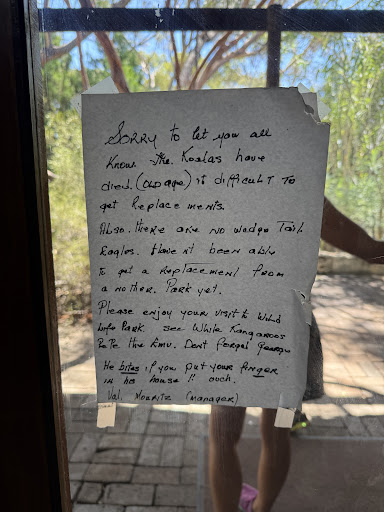 Sorry to let you all
Know. The Koalas have
died. (OLD age) it difficult to
get Replacements.
Also. there are no wedge Tail
Eagles. Haven't been able
to get a Replacement from
another. Park yet.
Please enjoy your visit to Wild
Life Park see White Kangaroos
Pete the Emu. Dont forget George
He bites if you put your finger
in his house !! ouch.
Val. Mouritz (manager)